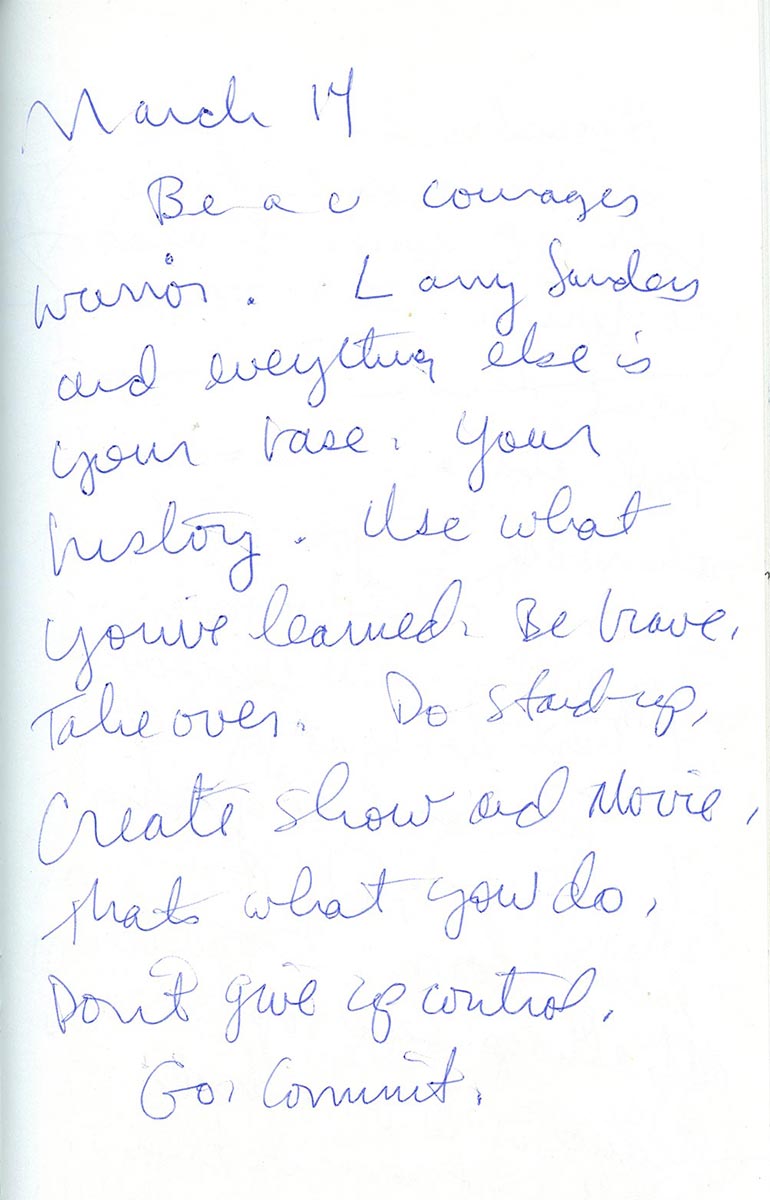 March 14
Be a c courages
warrior. Larry Sanders
and everything else is
your base. Your
history. Use what
you've learned. Be brave.
Take over. Do stand-up,
Create show and Movie,
thats what you do.
Don't give up control.
Go. Commit.